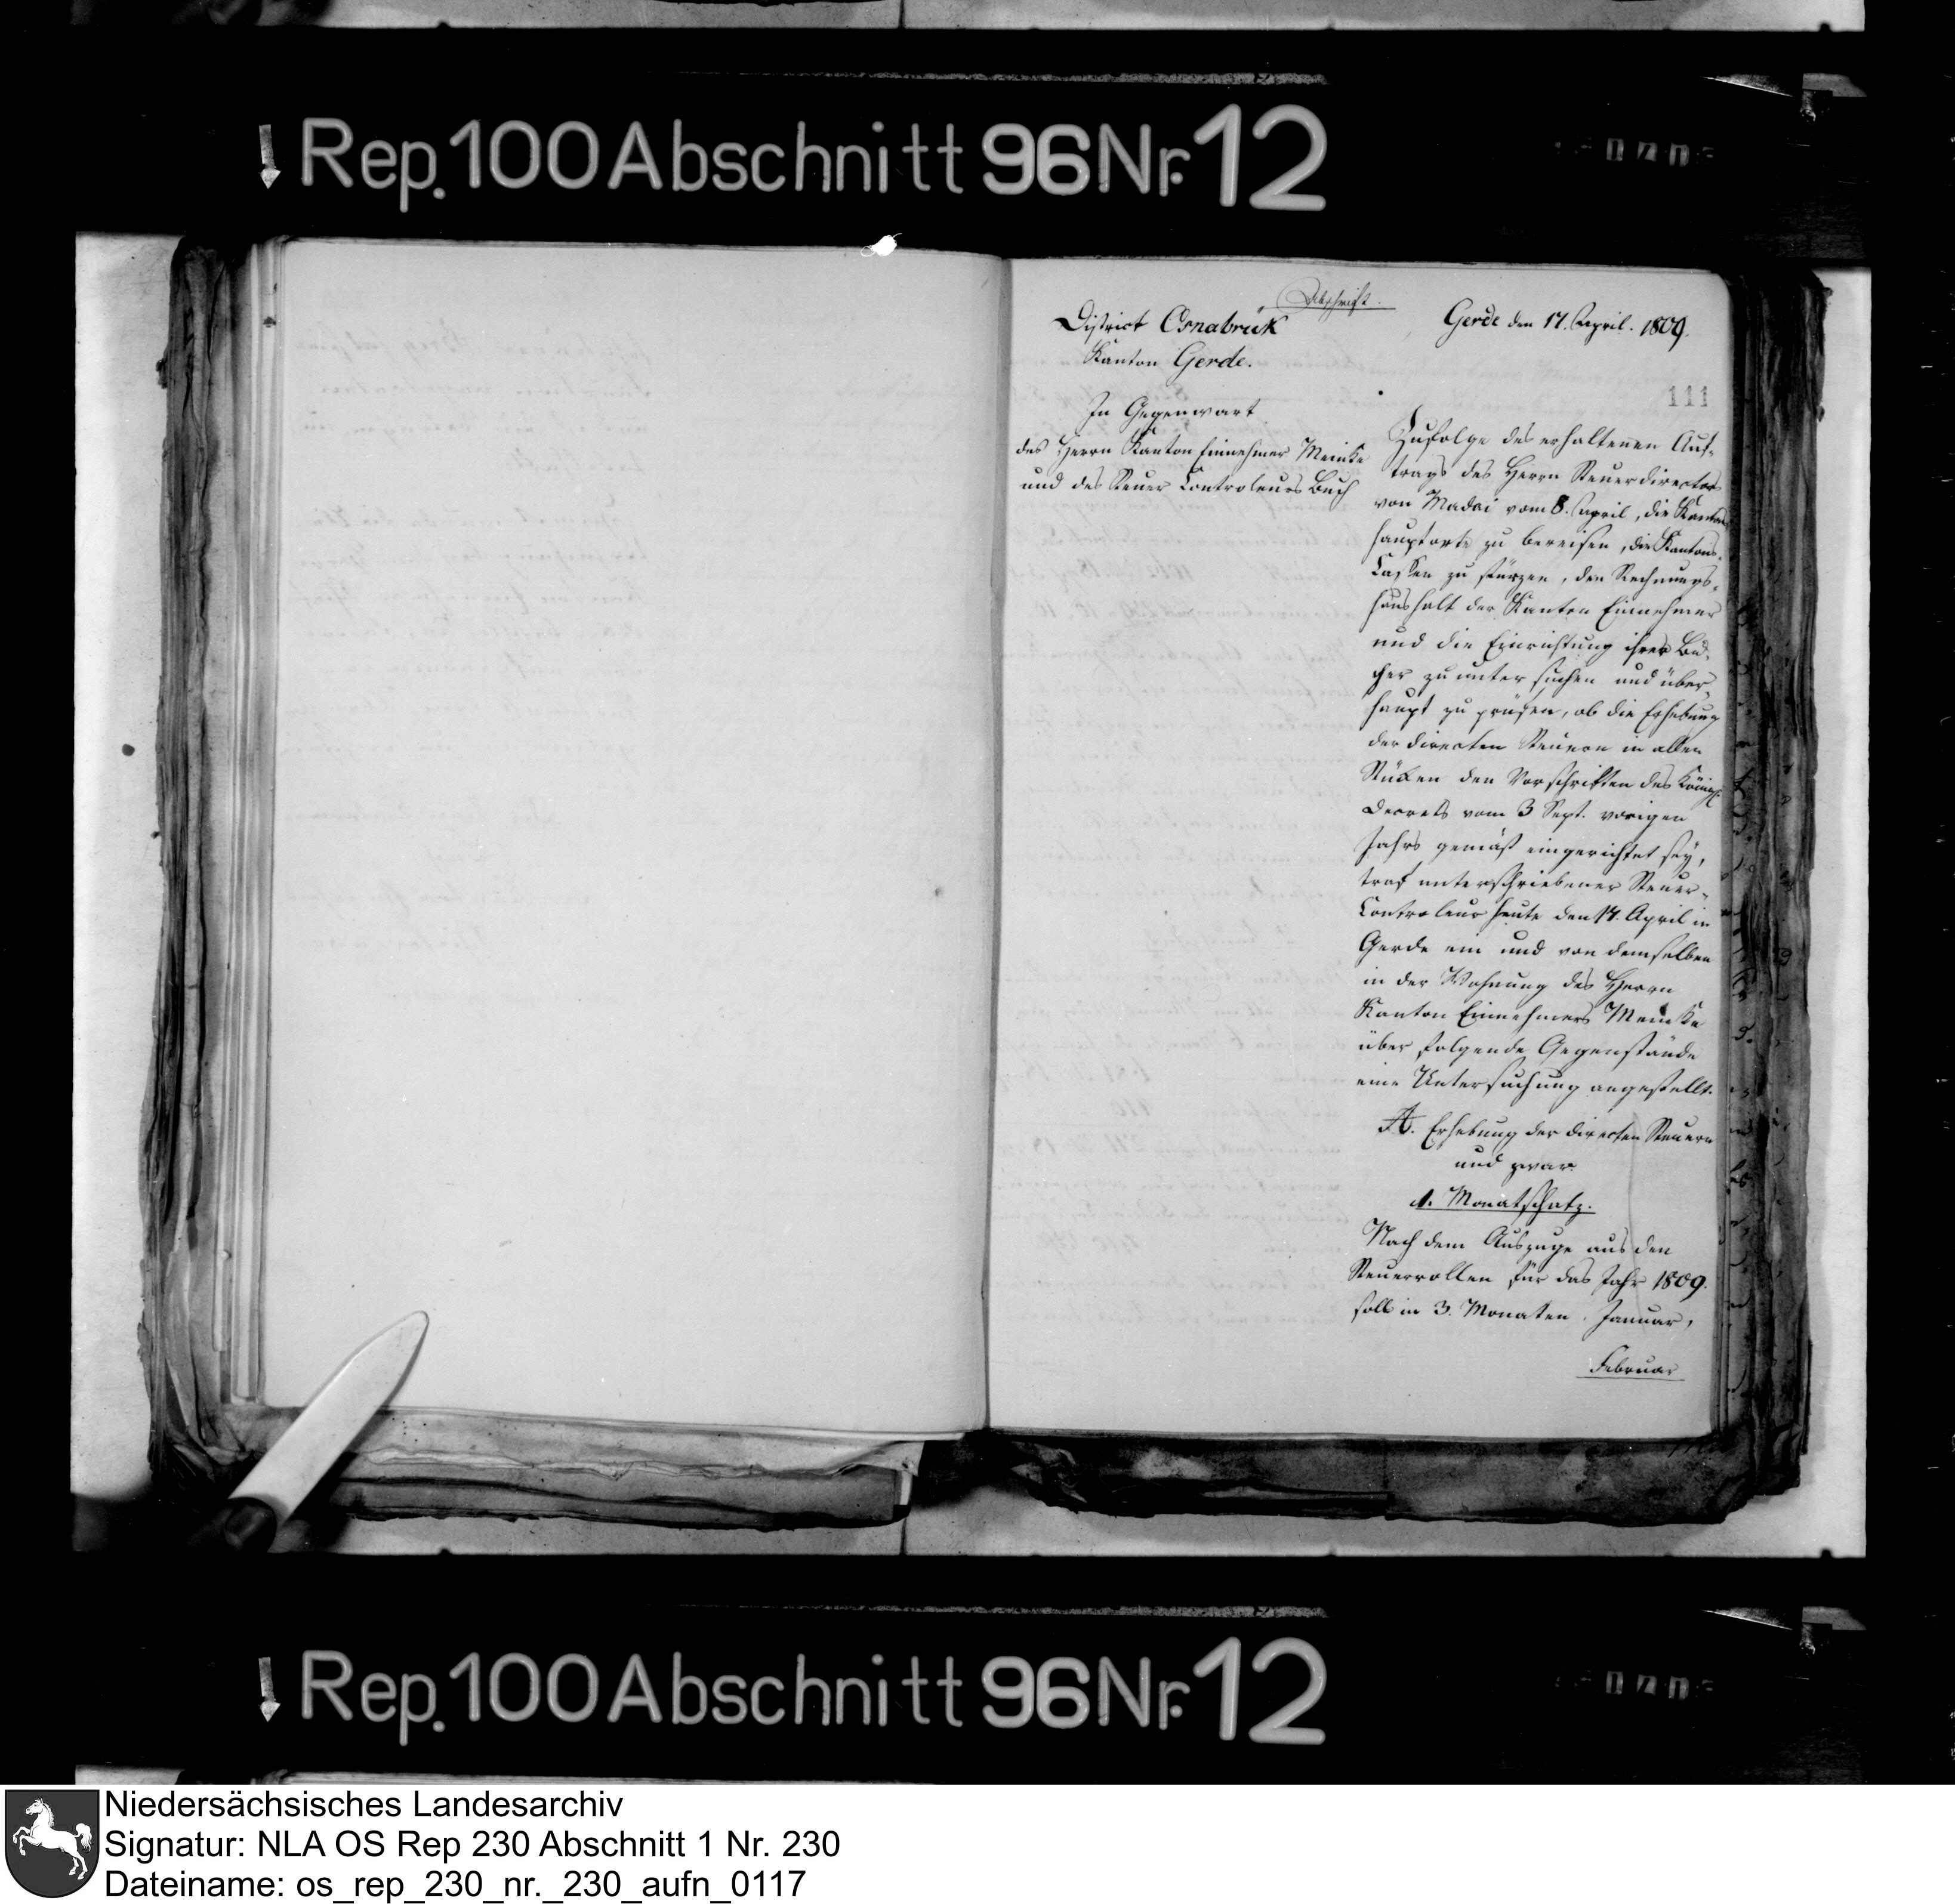 Rep. 100 Abschnitt 96 Nr. 12
Abschrift.
District Osnabrük
Kanton Gerde.
Gerde den 17. April. 1809.
111
In Gegenwart
des Herrn Kanton Einnehmer Meinke
und des Steuer Controleurs Buch
Zufolge des erhaltenen Auf-
trags des Herrn Steuerdirectors
von Madai vom 8. April, die Kantons
hauptorte zu bereisen, die Kantons-
Cassen zu stürzen, den Rechnungs-
haushalt der Kanton Einnehmer
und die Einrichtung ihrer Bü-
cher zu untersuchen und über-
haupt zu prüfen, ob die Erhebung
der directen Steuern in allen
Stüken den Vorschriften des Königl.
Decrets vom 3 Sept. vorigen
Jahrs gemäß eingerichtet sey,
traf unterschriebener Steuer-
Controleur heute den 17. April in
Gerde ein und von demselben
in der Wohnung des Herrn
Kanton Einnehmers Meinke
über folgende Gegenstände
eine Untersuchung angestellt.
A. Erhebung der directen Steuern
und zwar
1. Monatschatz.
Nach dem Auszuge aus den
Steuerrollen für das Jahr 1809.
soll in 3. Monaten, Januar,
Februar
Rep. 100 Abschnitt 96 Nr. 12
Niedersächsisches Landesarchiv
Signatur: NLA OS Rep 230 Abschnitt 1 Nr. 230
Dateiname: os_rep_230_nr._230_aufn_0117